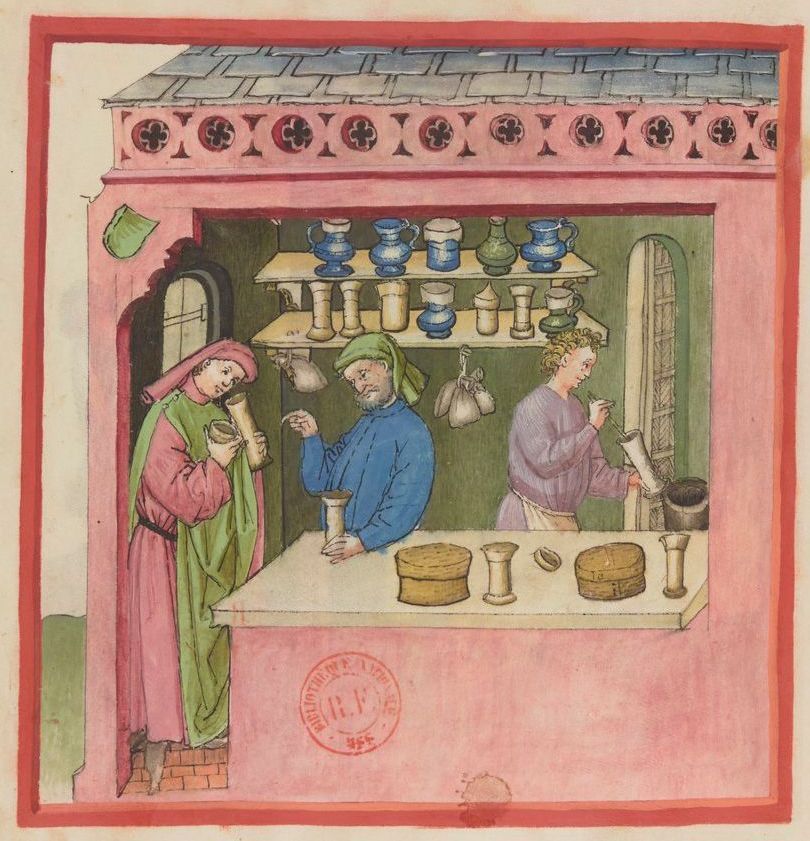 BIBLIOTHEQUE NATIONALE
R.F.